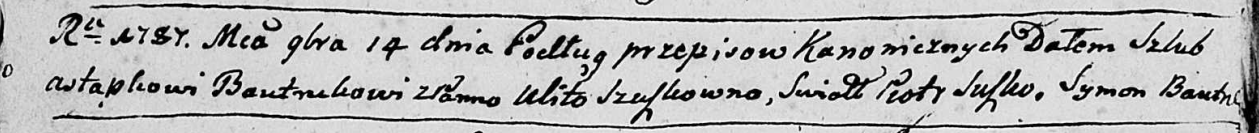 Rᵘ 1787. Mca 9bra 14 dnia Podług przepisow Kanonicznych Dałem Szlub
Astapkowi Bautrukowi z Panno Ulito Szuszkowno, Swiadk Piotr Suszko. Symon Bautr